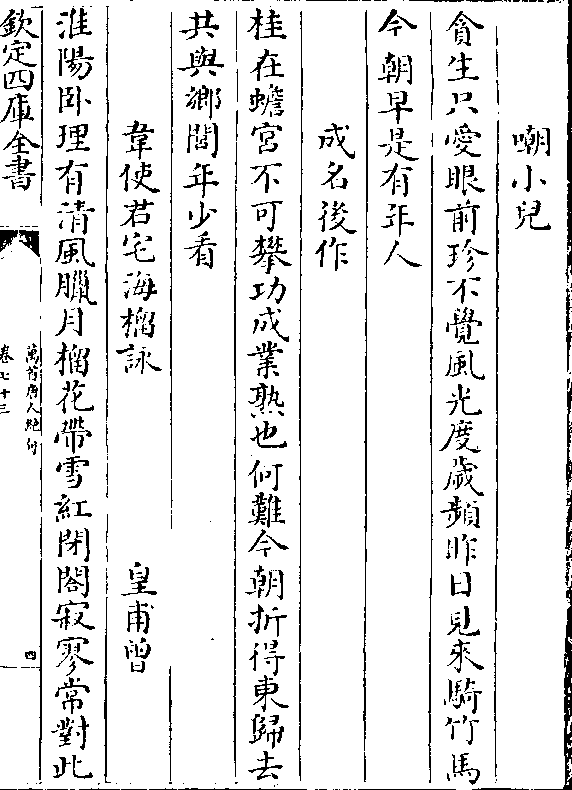 嘲小兒
貪生只愛眼前珍不覺風光度歲頻昨日見來騎竹馬
今朝早是有年人
成名後作
桂在蟾宮不可攀功成業熟也何難今朝折得東歸去
共與鄉閭年少看
韋使君宅海榴詠 皇甫曾
淮陽卧理有清風臘月榴花帶雪紅閉閤寂寥常對此
欽定四庫全書
萬首唐人絶句
卷七十三
四